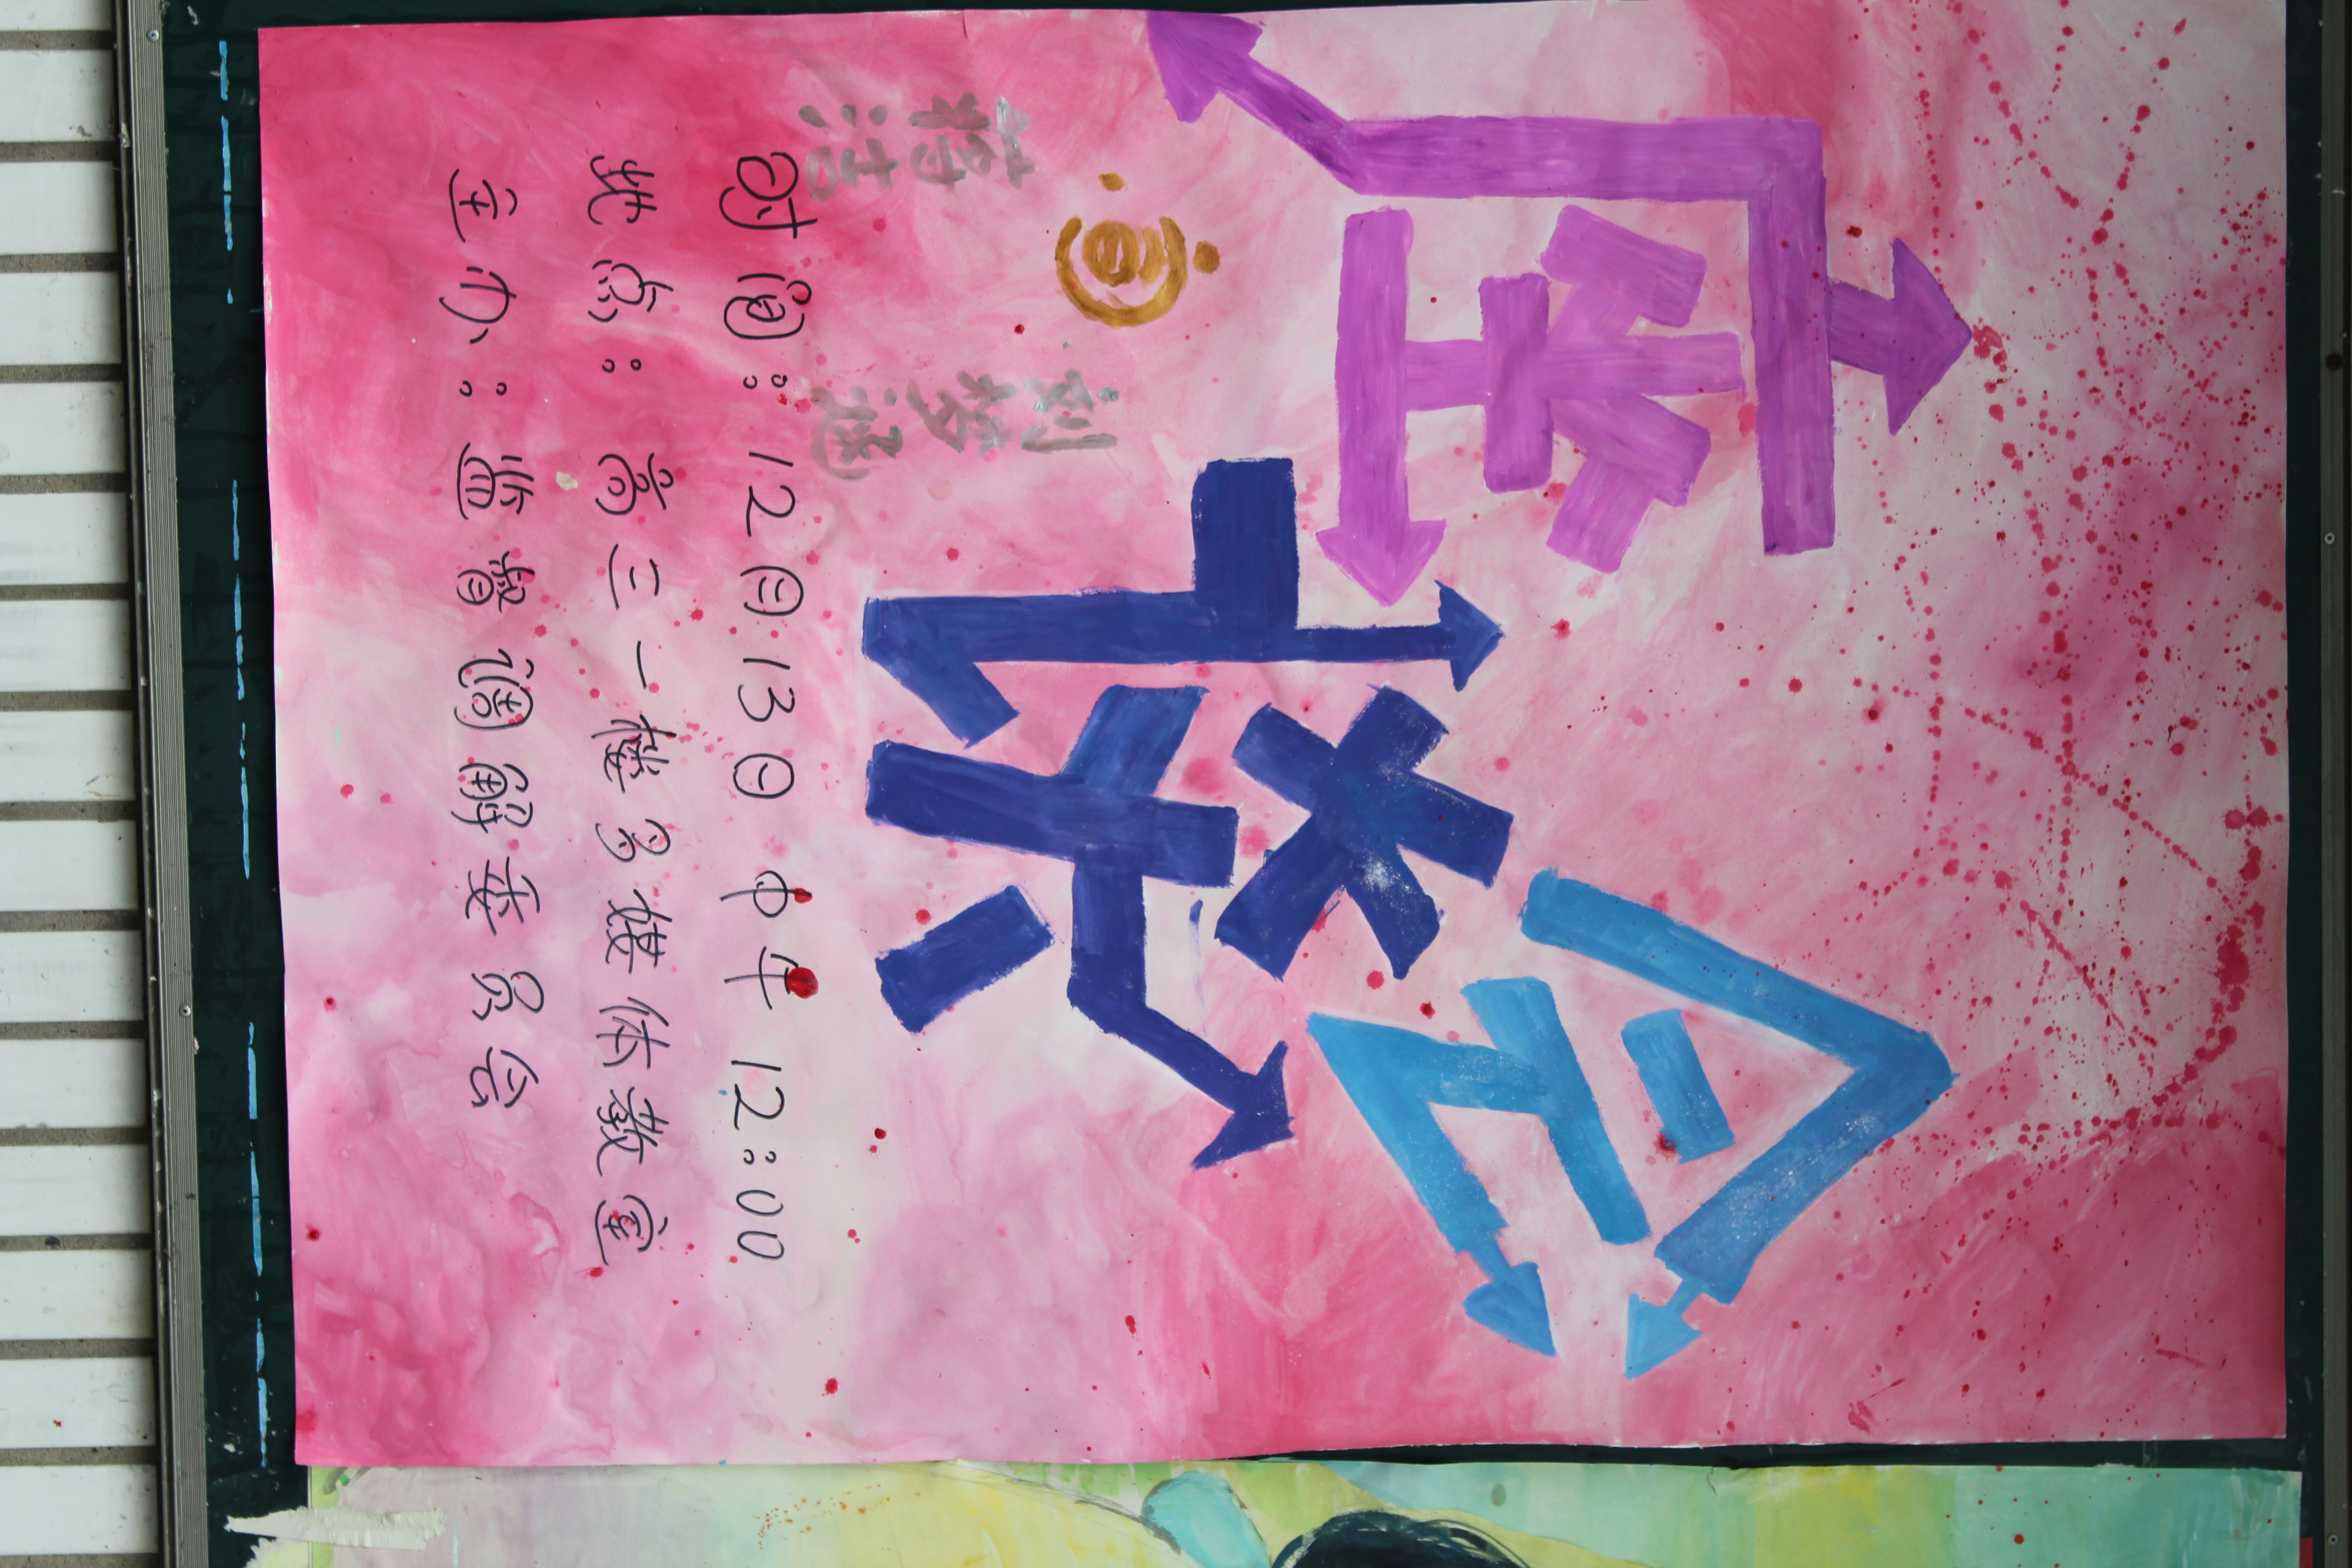 座谈会
蒋洁
刘梦
时间：12月13日 中午 12:00
地点：高三一楼多媒体教室
主办：监督调解委员会